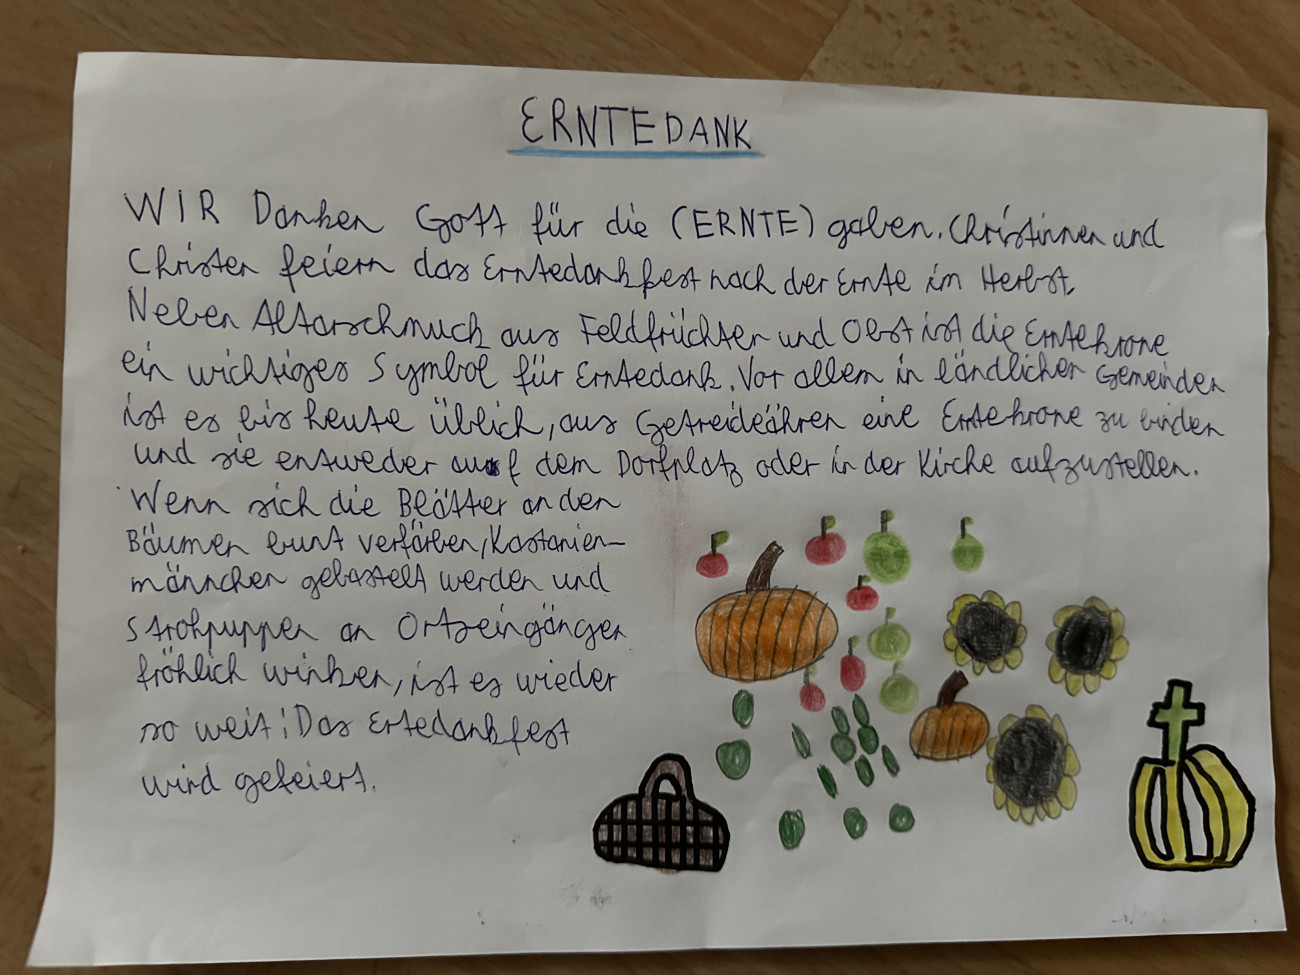 ERNTEDANK
WIR Danken Gott für die (ERNTE) gaben. Christinnen und
Christen feiern das Erntedankfest nach der Ernte im Herbst.
Neben Altarschmuck aus Feldfrüchten und Obst ist die Erntekrone
ein wichtiges Symbol für Erntedank. Vor allem in ländlichen Gemeinden
ist es bis heute üblich, aus Getreideähren eine Erntekrone zu binden
und sie entweder auf dem Dorfplatz oder in der Kirche aufzustellen.
Wenn sich die Blätter an den
Bäumen bunt verfärben, Kastanien-
männchen gebastelt werden und
Strohpuppen an Ortseingängen
fröhlich winken, ist es wieder
so weit: Das Ertedankfest
wird gefeiert.